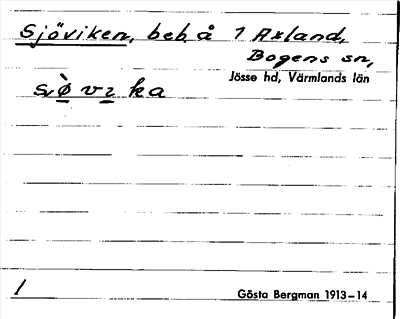 Sjöviken, beb. å 1 Axland,
Bogens sn,
Jösse hd, Värmlands län
sø̀vıka
1
Gösta Bergman 1913–14